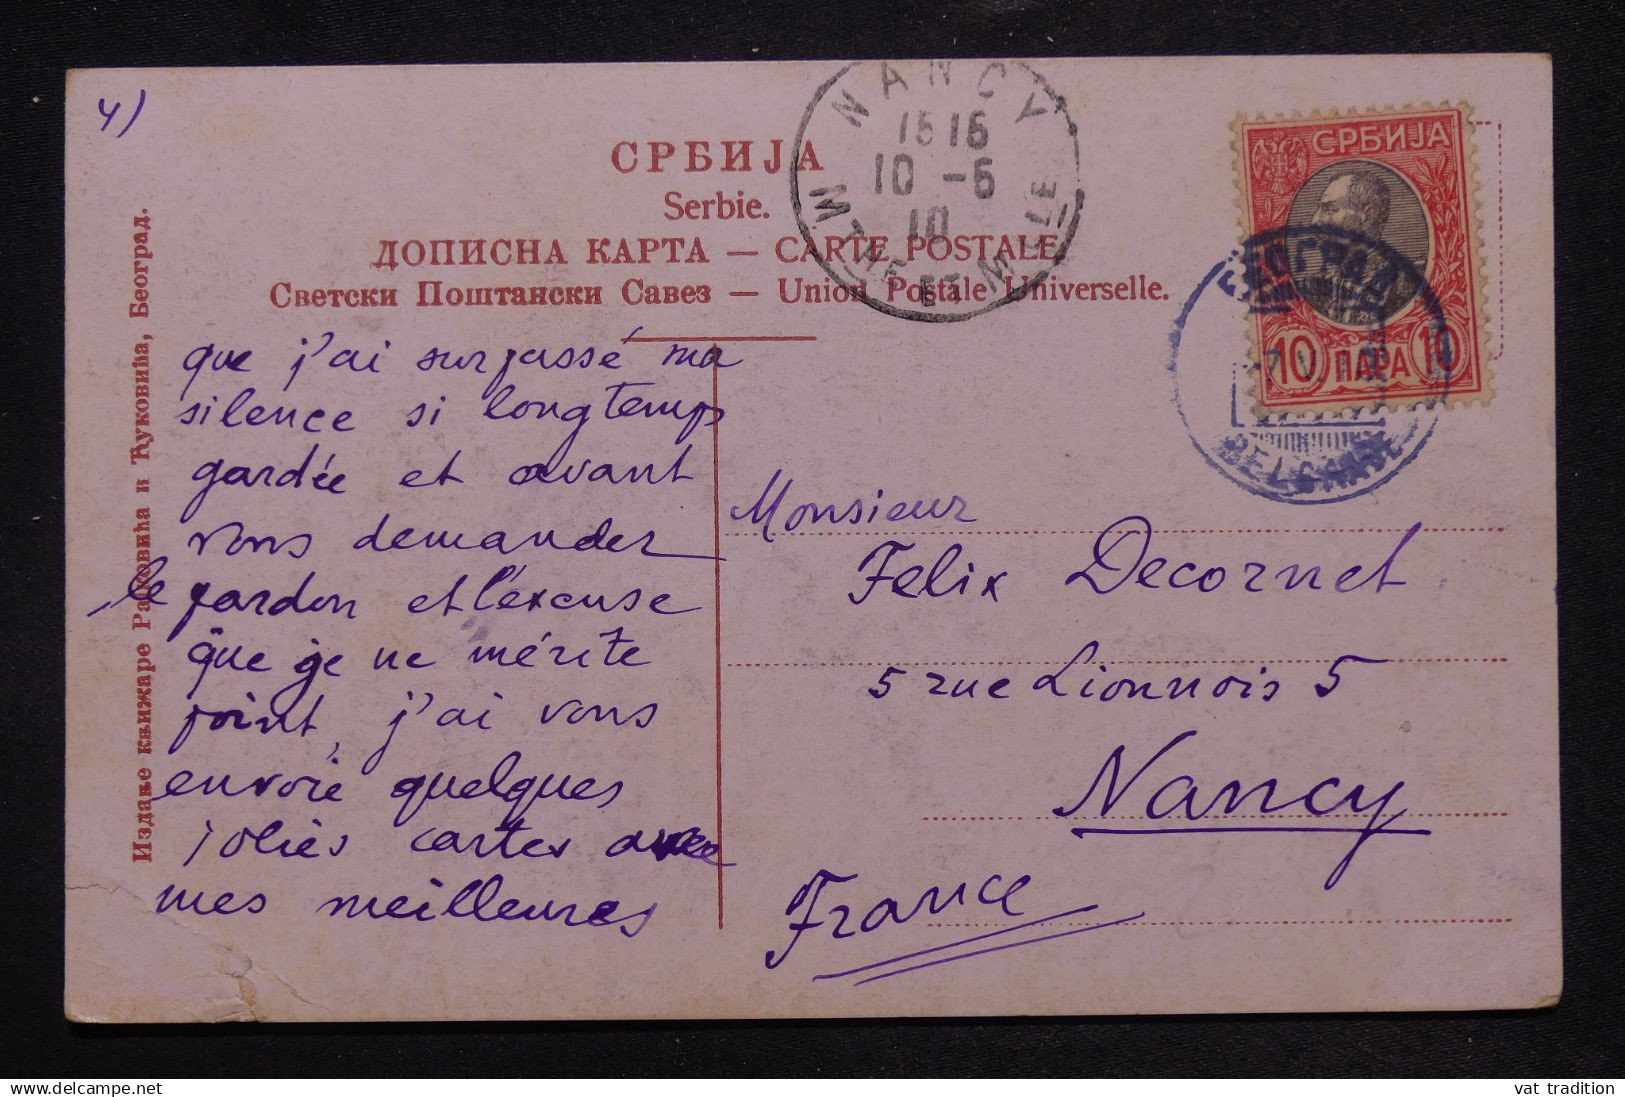 4)
NANCY
1616
10 -6
10
MTHE ET MELLE
СРБИЈА
Serbie.
ДОПИСНА КАРТА — CARTE POSTALE
Светски Поштански Савез — Union Postale Universelle.
СРБИЈА
10 ПАРА 10
БЕОГРАД
BELGRADE
Издање књижаре Рајковића и Ћуковића, Београд.
que j'ai surpassé ma
silence si longtemps
gardée et avant
vous demander
le pardon et l'excuse
que je ne mérite
point, j'ai vous
envoié quelques
joliès cartes avec
mes meilleures
Monsieur
Felix Decornet
5 rue Lionnois 5
Nancy
France
vat tradition